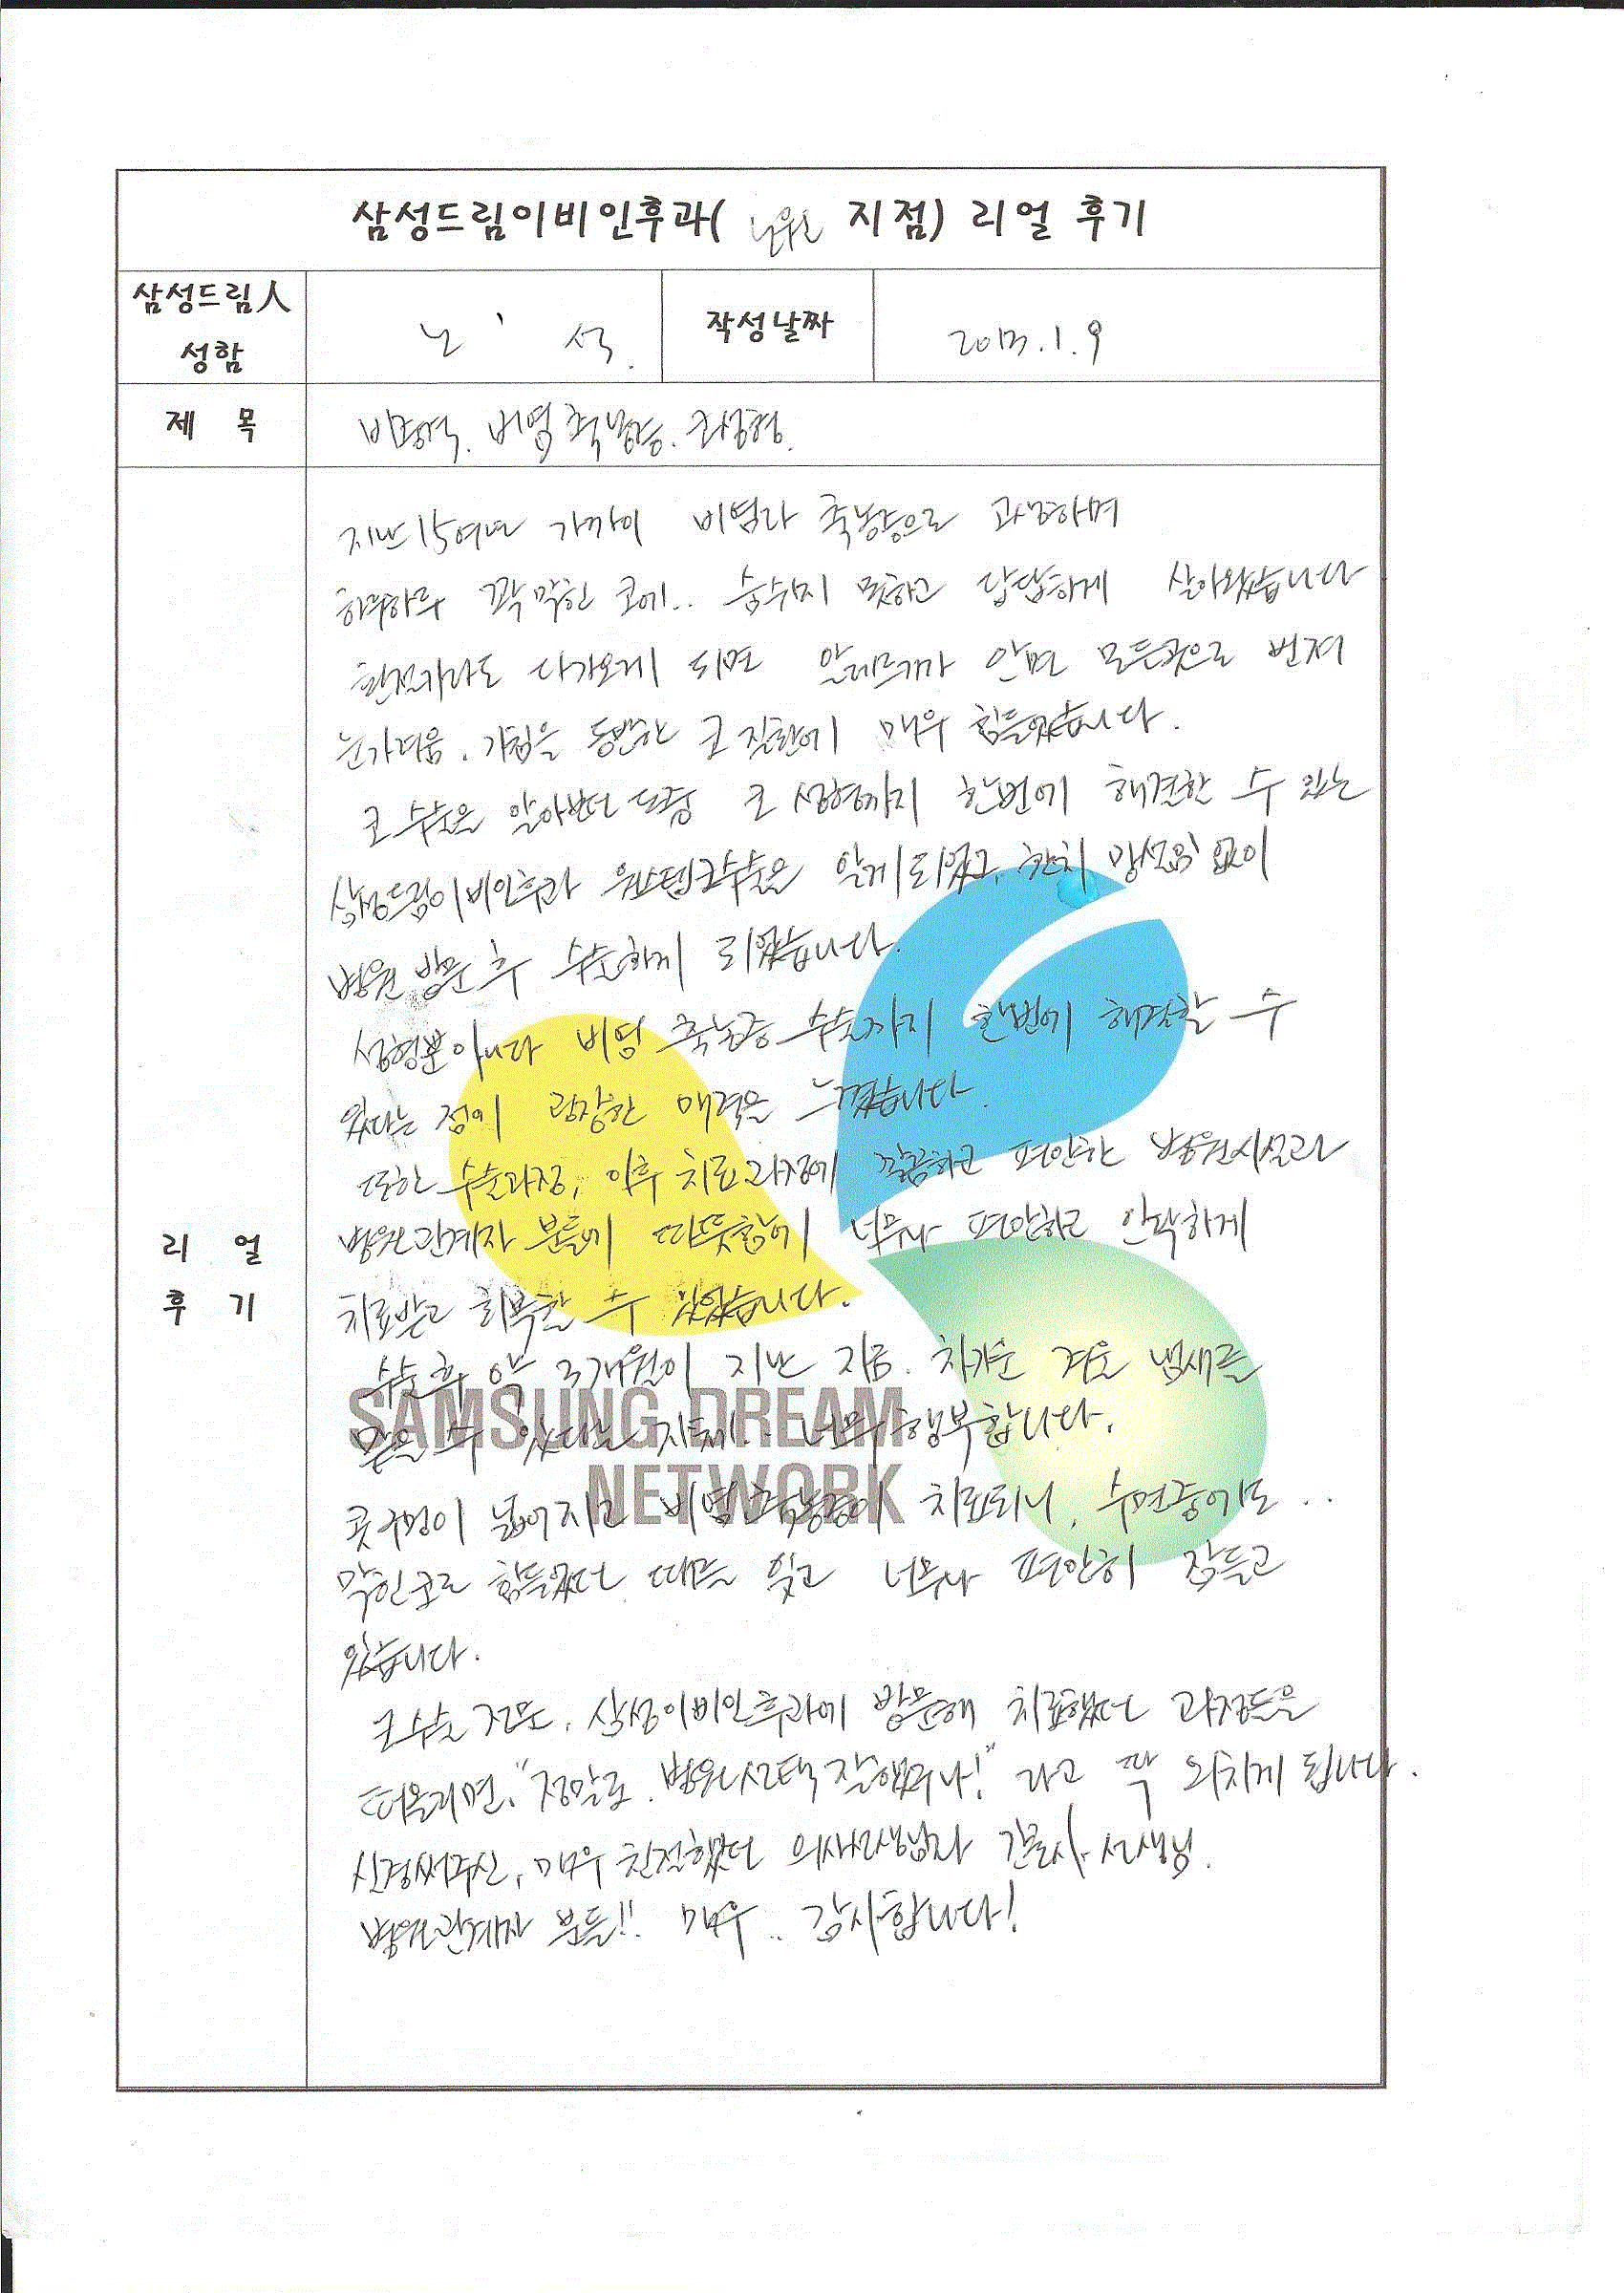 삼성드림이비인후과( 노원 지점) 리얼 후기
삼성드림人
성함
노 석.
작성날짜
2013.1.9
제 목
비중격. 비염 축농증. 코성형.
지난 15여년 가까이 비염과 축농증으로 고생하며
하루하루 꽉 막힌 코에.. 숨쉬지 못하고 답답하게 살아왔습니다
환절기라도 다가오게 되면 알레르기가 안면 모든곳으로 번져
눈가려움. 기침을 동반한 코 질환에 매우 힘들었습니다.
코 수술을 알아보던 도중 코 성형까지 한번에 해결할 수 있는
삼성드림이비인후과 원스텝코수술을 알게되었고, 한치 망설임 없이
병원 방문 후 수술하게 되었습니다.
성형뿐아니라 비염 축농증 수술까지 한번에 해결할 수
있다는 점이 굉장한 매력을 느꼈습니다.
또한 수술과정, 이후 치료과정에 깔끔하고 편안한 병원시설과
병원관계자 분들에 따뜻함에 너무나 편안하고 안락하게
치료받고 회복할 수 있었습니다.
리 얼
후 기
수술 후 약 3개월이 지난 지금. 차가운 겨울 냄새를
맡을 수 있다는 자체.. 너무 행복합니다.
SAMSUNG DREAM
NETWORK
콧구멍이 넓어지고 비염 축농증이 치료되니, 수면중에도..
막힌코로 힘들었던 때를 잊고 너무나 편안히 잠들고
있습니다.
코수술 전문. 삼성이비인후과에 방문해 치료했던 과정들을
떠올리면, "정말로. 병원선택 잘했구나!" 라고 딱 외치게 됩니다.
신경써주신, 매우 친절했던 의사선생님과 간호사 선생님.
병원관계자 분들!! 매우.. 감사합니다!